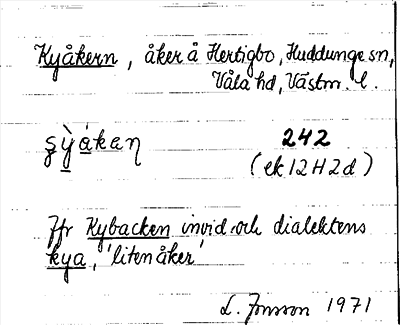 Kyåkern, åker å Hertigbo, Huddunge sn,
Våla hd, Västm. l.
ʂỳåkaɳ 242
(ek 12H2d)
Jfr Kybacken invid och dialektens
kya, 'liten åker'
L. Jonson 1971